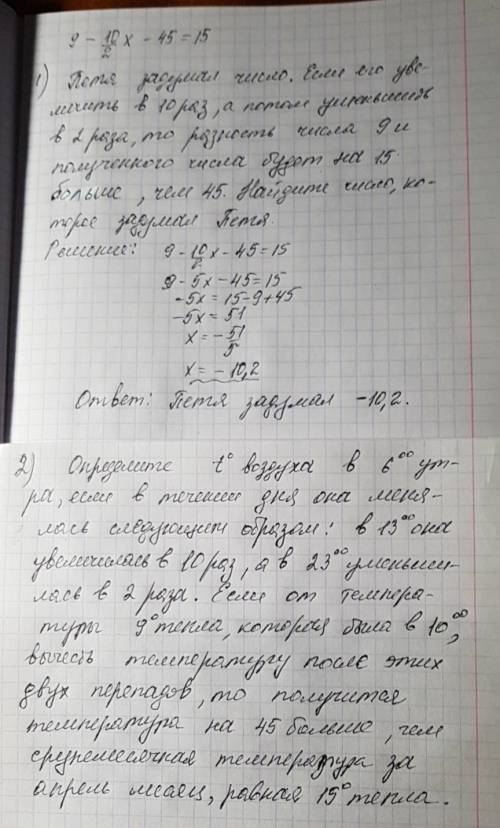 9 - 10/2 x - 45 = 15
1) Петя задумал число. Если его уве-
личить в 10 раз, а потом уменьшить
в 2 раза, то разность числа 9 и
полученного числа будет на 15
больше, чем 45. Найдите число, ко-
торое задумал Петя.
Решение: 9 - 10/2 x - 45 = 15
9 - 5x - 45 = 15
-5x = 15 - 9 + 45
-5x = 51
x = - 51/5
x = - 10,2
Ответ: Петя задумал -10,2.
2) Определите t° воздуха в 6⁰⁰ ут-
ра, если в течении дня она меня-
лась следующим образом: в 13⁰⁰ она
увеличилась в 10 раз, а в 23⁰⁰ уменьши-
лась в 2 раза. Если от темпера-
туры 9° тепла, которая была в 10⁰⁰,
вычесть температуру после этих
двух перепадов, то получится
температура на 45 больше, чем
среднемесячная температура за
апрель месяц, равная 15° тепла.